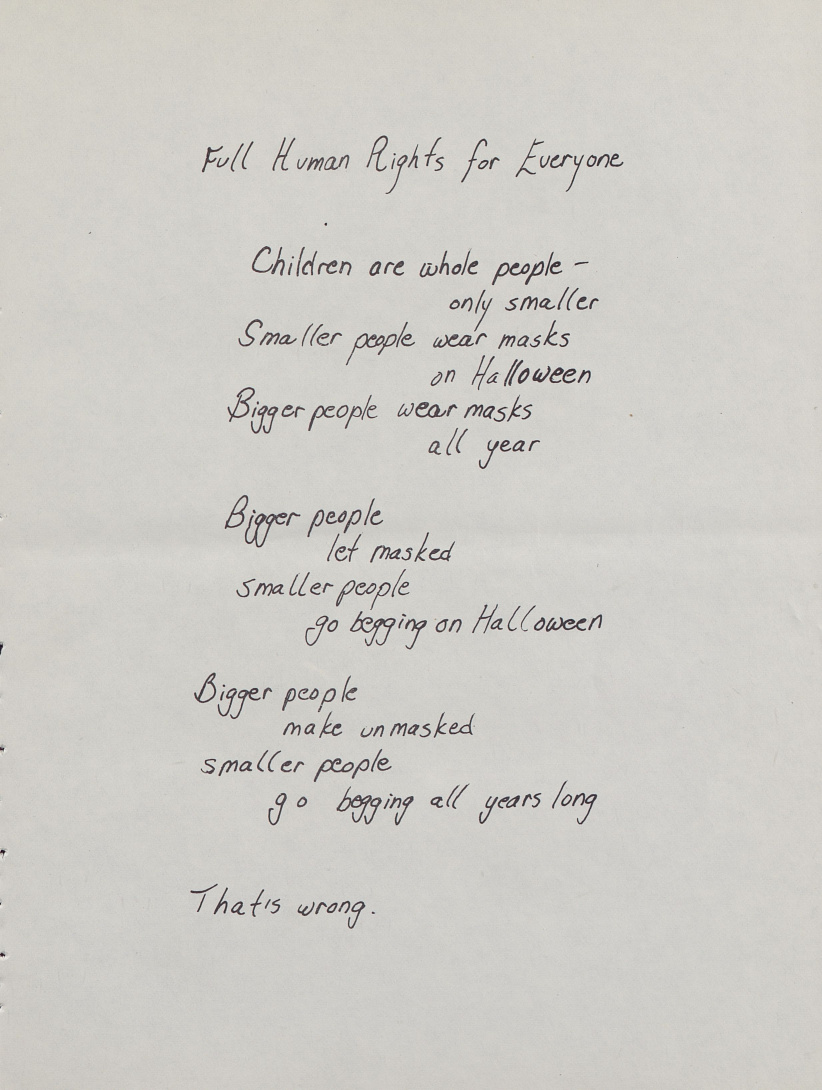 Full Human Rights for Everyone
Children are whole people –
only smaller
Smaller people wear masks
on Halloween
Bigger people wear masks
all year
Bigger people
let masked
smaller people
go begging on Halloween
Bigger people
make unmasked
smaller people
go begging all years long
That's wrong.